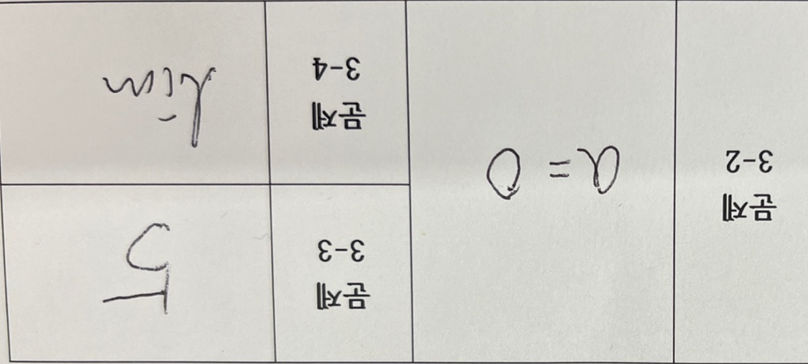 문제
3-2
a = 0
문제
3-3
5
문제
3-4
kim